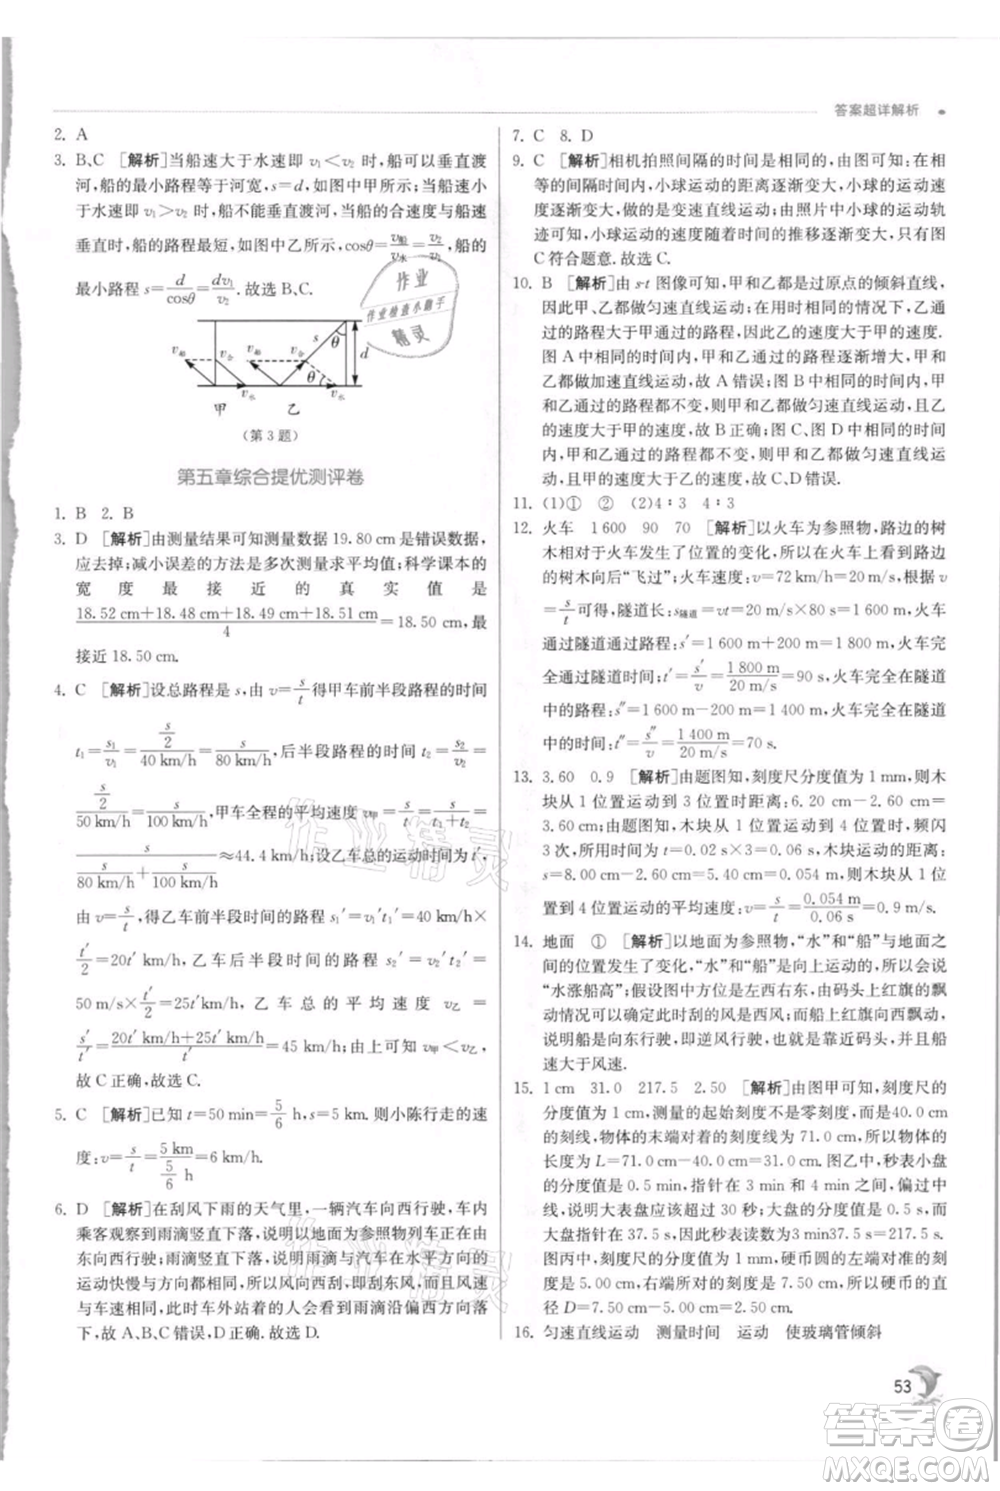 答案超详解析
2. A
3. B、C [解析]当船速大于水速即v₁<v₂时,船可以垂直渡
河,船的最小路程等于河宽,s=d,如图中甲所示;当船速小
于水速即v₁>v₂时,船不能垂直渡河,当船的合速度与船速
垂直时,船的路程最短,如图中乙所示,cosθ=v船/v水=v₂/v₁,船的
最小路程 s=d/cosθ=dv₁/v₂.故选B、C.
v船 v合 v船 v合 s θ d
θ
v水 v水
甲 乙
(第3题)
第五章综合提优测评卷
1. B 2. B
3. D [解析]由测量结果可知测量数据19.80 cm是错误数据,
应去掉;减小误差的方法是多次测量求平均值;科学课本的
宽度最接近的真实值是
(18.52 cm+18.48 cm+18.49 cm+18.51 cm)/4=18.50 cm,最
接近18.50 cm.
4. C [解析]设总路程是s,由v=s/t得甲车前半段路程的时间
t₁=s₁/v₁=(s/2)/(40 km/h)=s/(80 km/h),后半段路程的时间t₂=s₂/v₂=
(s/2)/(50 km/h)=s/(100 km/h),甲车全程的平均速度v甲=s/(t₁+t₂)=
s/(s/(80 km/h)+s/(100 km/h))≈44.4 km/h;设乙车总的运动时间为t′,
由v=s/t,得乙车前半段时间的路程s₁′=v₁′t₁′=40 km/h×
t′/2=20t′km/h,乙车后半段时间的路程s₂′=v₂′t₂′=
50 m/s×t′/2=25t′km/h,乙车的平均速度v乙=
s′/t′=(20t′km/h+25t′km/h)/t′=45 km/h;由上可知v甲<v乙,
故C正确,故选C.
5. C [解析]已知t=50 min=5/6 h,s=5 km,则小陈行走的速
度:v=s/t=(5 km)/(5/6 h)=6 km/h.故选C.
6. D [解析]在刮风下雨的天气里,一辆汽车向西行驶,车内
乘客观察到雨滴竖直下落,说明以地面为参照物列车正在
向西行驶;雨滴竖直下落,说明雨滴与汽车在水平方向上的
运动快慢与方向都相同,所以此时在向西刮东风,而且风速
与车速相同,此时车外站着的人会看到雨滴沿偏西方向落
下,故A、B、C错误,D正确.故选D.
7. C 8. D
9. C [解析]相机拍照间隔的时间是相同的,由图可知:在相
等的间隔时间内,小球运动的距离逐渐变大,小球的运动速
度逐渐变大,做的是变速直线运动;由照片中小球的运动轨
迹可知,小球运动的速度随着时间的推移逐渐变大,只有图
C符合题意.故选C.
10. B [解析]由s-t图像可知,甲和乙都是过原点的倾斜直线,
因此甲、乙都做匀速直线运动;在时间相同的情况下,乙通过
的路程大于甲通过的路程,所以乙的速度大于甲的速度.
图A中相同的时间,甲和乙通过的路程逐渐增大,甲和
乙都做加速直线运动,故A错误;图B中相同的时间,
甲和乙通过的路程都不变,则甲和乙都做匀速直线运动,
且甲的速度小于乙的速度,故B正确;图C、D中相同的时
间,甲和乙通过的路程都不变,甲和乙都做匀速直线运动,
且甲的速度大于乙的速度,故C、D错误.
11. (1)① ② (2)4∶3 4∶3
12. 火车 1 600 90 70 [解析]以火车为参照物,路边的树
木相对于火车发生了位置的变化,所以坐在火车里看到路边
的树木向后“飞过”;火车速度:v=72 km/h=20 m/s,由v=
s/t可得,隧道长:s隧道=vt=20 m/s×80 s=1 600 m,火车
通过隧道通过路程:s′=1 600 m+200 m=1 800 m,火车完
全通过隧道时间:t′=s′/v=(1 800 m)/(20 m/s)=90 s,火车全部在隧道
中的路程:s″=1 600 m-200 m=1 400 m,火车全部在隧道
中的运动时间:t″=s″/v=(1 400 m)/(20 m/s)=70 s.
13. 3.60 0.9 [解析]由题图知,刻度尺分度值为1 mm,则木
块从1位置运动到3位置时距离:6.20 cm-2.60 cm=
3.60 cm;由题图知,木块从1位置运动到4位置时,频闪
3次,所用时间:t=0.02 s×3=0.06 s;木块运动的距离:
s=8.00 cm-2.60 cm=5.40 cm=0.054 m,木块从1位
置到4位置运动的平均速度:v=s/t=(0.054 m)/(0.06 s)=0.9 m/s.
14. 地面 ① [解析]以地面为参照物,“水”和“船”与地面之
间的位置发生了变化,“水”和“船”是向上运动的,所以说
“水涨船高”;假设此题的方向是左西右东,由码头上红旗的飘
动情况可以确定此时刮的风是西风;而船上红旗向西飘动,
说明船是向东行驶,是逆风行驶,说明船驶近码头,并且船
速大于风速.
15. 1 cm 31.0 217.5 2.50 [解析]由图甲可知,刻度尺的分
度值为1 cm,测量的起始刻度不是零刻度,而是对着40.0
的刻线,物体的末端对着的刻度为71.0 cm,所以被测物体
的长度为L=71.0 cm-40.0 cm=31.0 cm.图乙中,秒表小盘
的分度值是0.5 min,指针在3和4之间,偏过中线,
说明大表盘应该超过30秒;大盘的分度值是0.5 s,指针
在37.5 s处,所以此时秒表读数为3 min37.5 s=217.5 s.
图丙中,刻度尺的分度值为1 mm,硬币圆的左端对准的刻
度是5.00 cm,右端所对的刻度是7.50 cm,所以硬币的直
径D=7.50 cm-5.00 cm=2.50 cm.
16. 匀速直线运动 测量时间 运动 使玻璃管倾斜
53
作业
作业检查小助手
精灵
作业精灵
作业精灵
答案圈
MXQE.COM